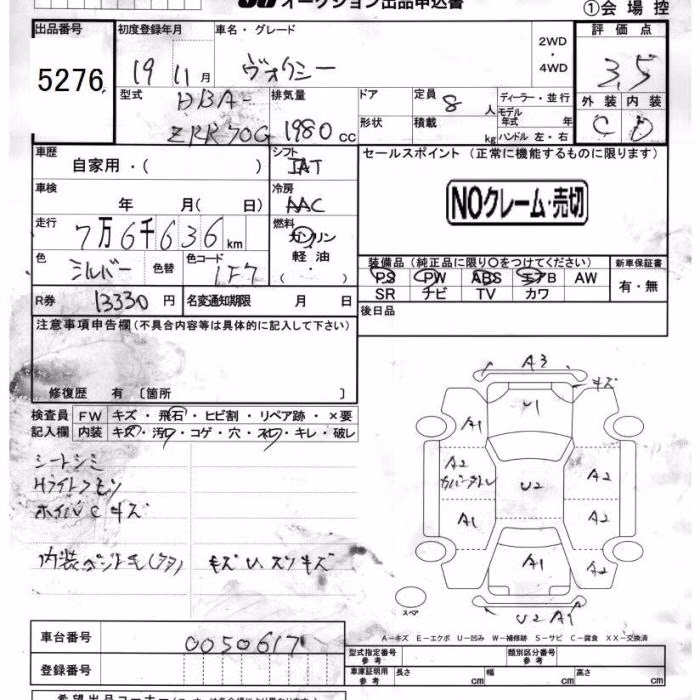 オークション出品申込書
①会場控
出品番号 5276
初度登録年月 19 11月
車名・グレード ヴォクシー
2WD・4WD
評価点 3,5
外装 C 内装 D
型式 DBA- ZRR70G
排気量 1980 cc
ドア
形状
定員 8 人
積載 kg
ディーラー・並行
モデル年式 年
ハンドル 左・右
車歴 自家用・( )
シフト IAT
セールスポイント (正常に機能するものに限ります)
NOクレーム・売切
車検 年 月( 日)
冷房 AAC
走行 7万6千636km
燃料 ガソリン 軽油・( ・ )
色 シルバー 色替
色コード 1F7
装備品 (純正品に限り○をつけてください)
PS PW ABS エアB AW
SR ナビ TV カワ
新車保証書 有・無
R券 13330円
名変通知期限 月 日
後日品
注意事項申告欄 (不具合内容等は具体的に記入して下さい)
修復歴 有 〔箇所 〕
検査員記入欄
FW キズ・飛石・ヒビ割・リペア跡・×要
内装 キズ・汚レ・コゲ・穴・スレ・キレ・破レ
シートシミ
Hライトクモリ
ホイルCキズ
キズU、スリキズ
A3
キズ
U1
A1
A2
U2
A2
A1
A2
A1
A2
スペア
U2 A1
A－キズ E－エクボ U－凹み W－補修跡 S－サビ C－腐食 XX－交換済
車台番号 0050617
登録番号
型式指定番号 参考
類別区分番号 参考
車庫証明用 参考 長さ cm 幅 cm 高さ cm